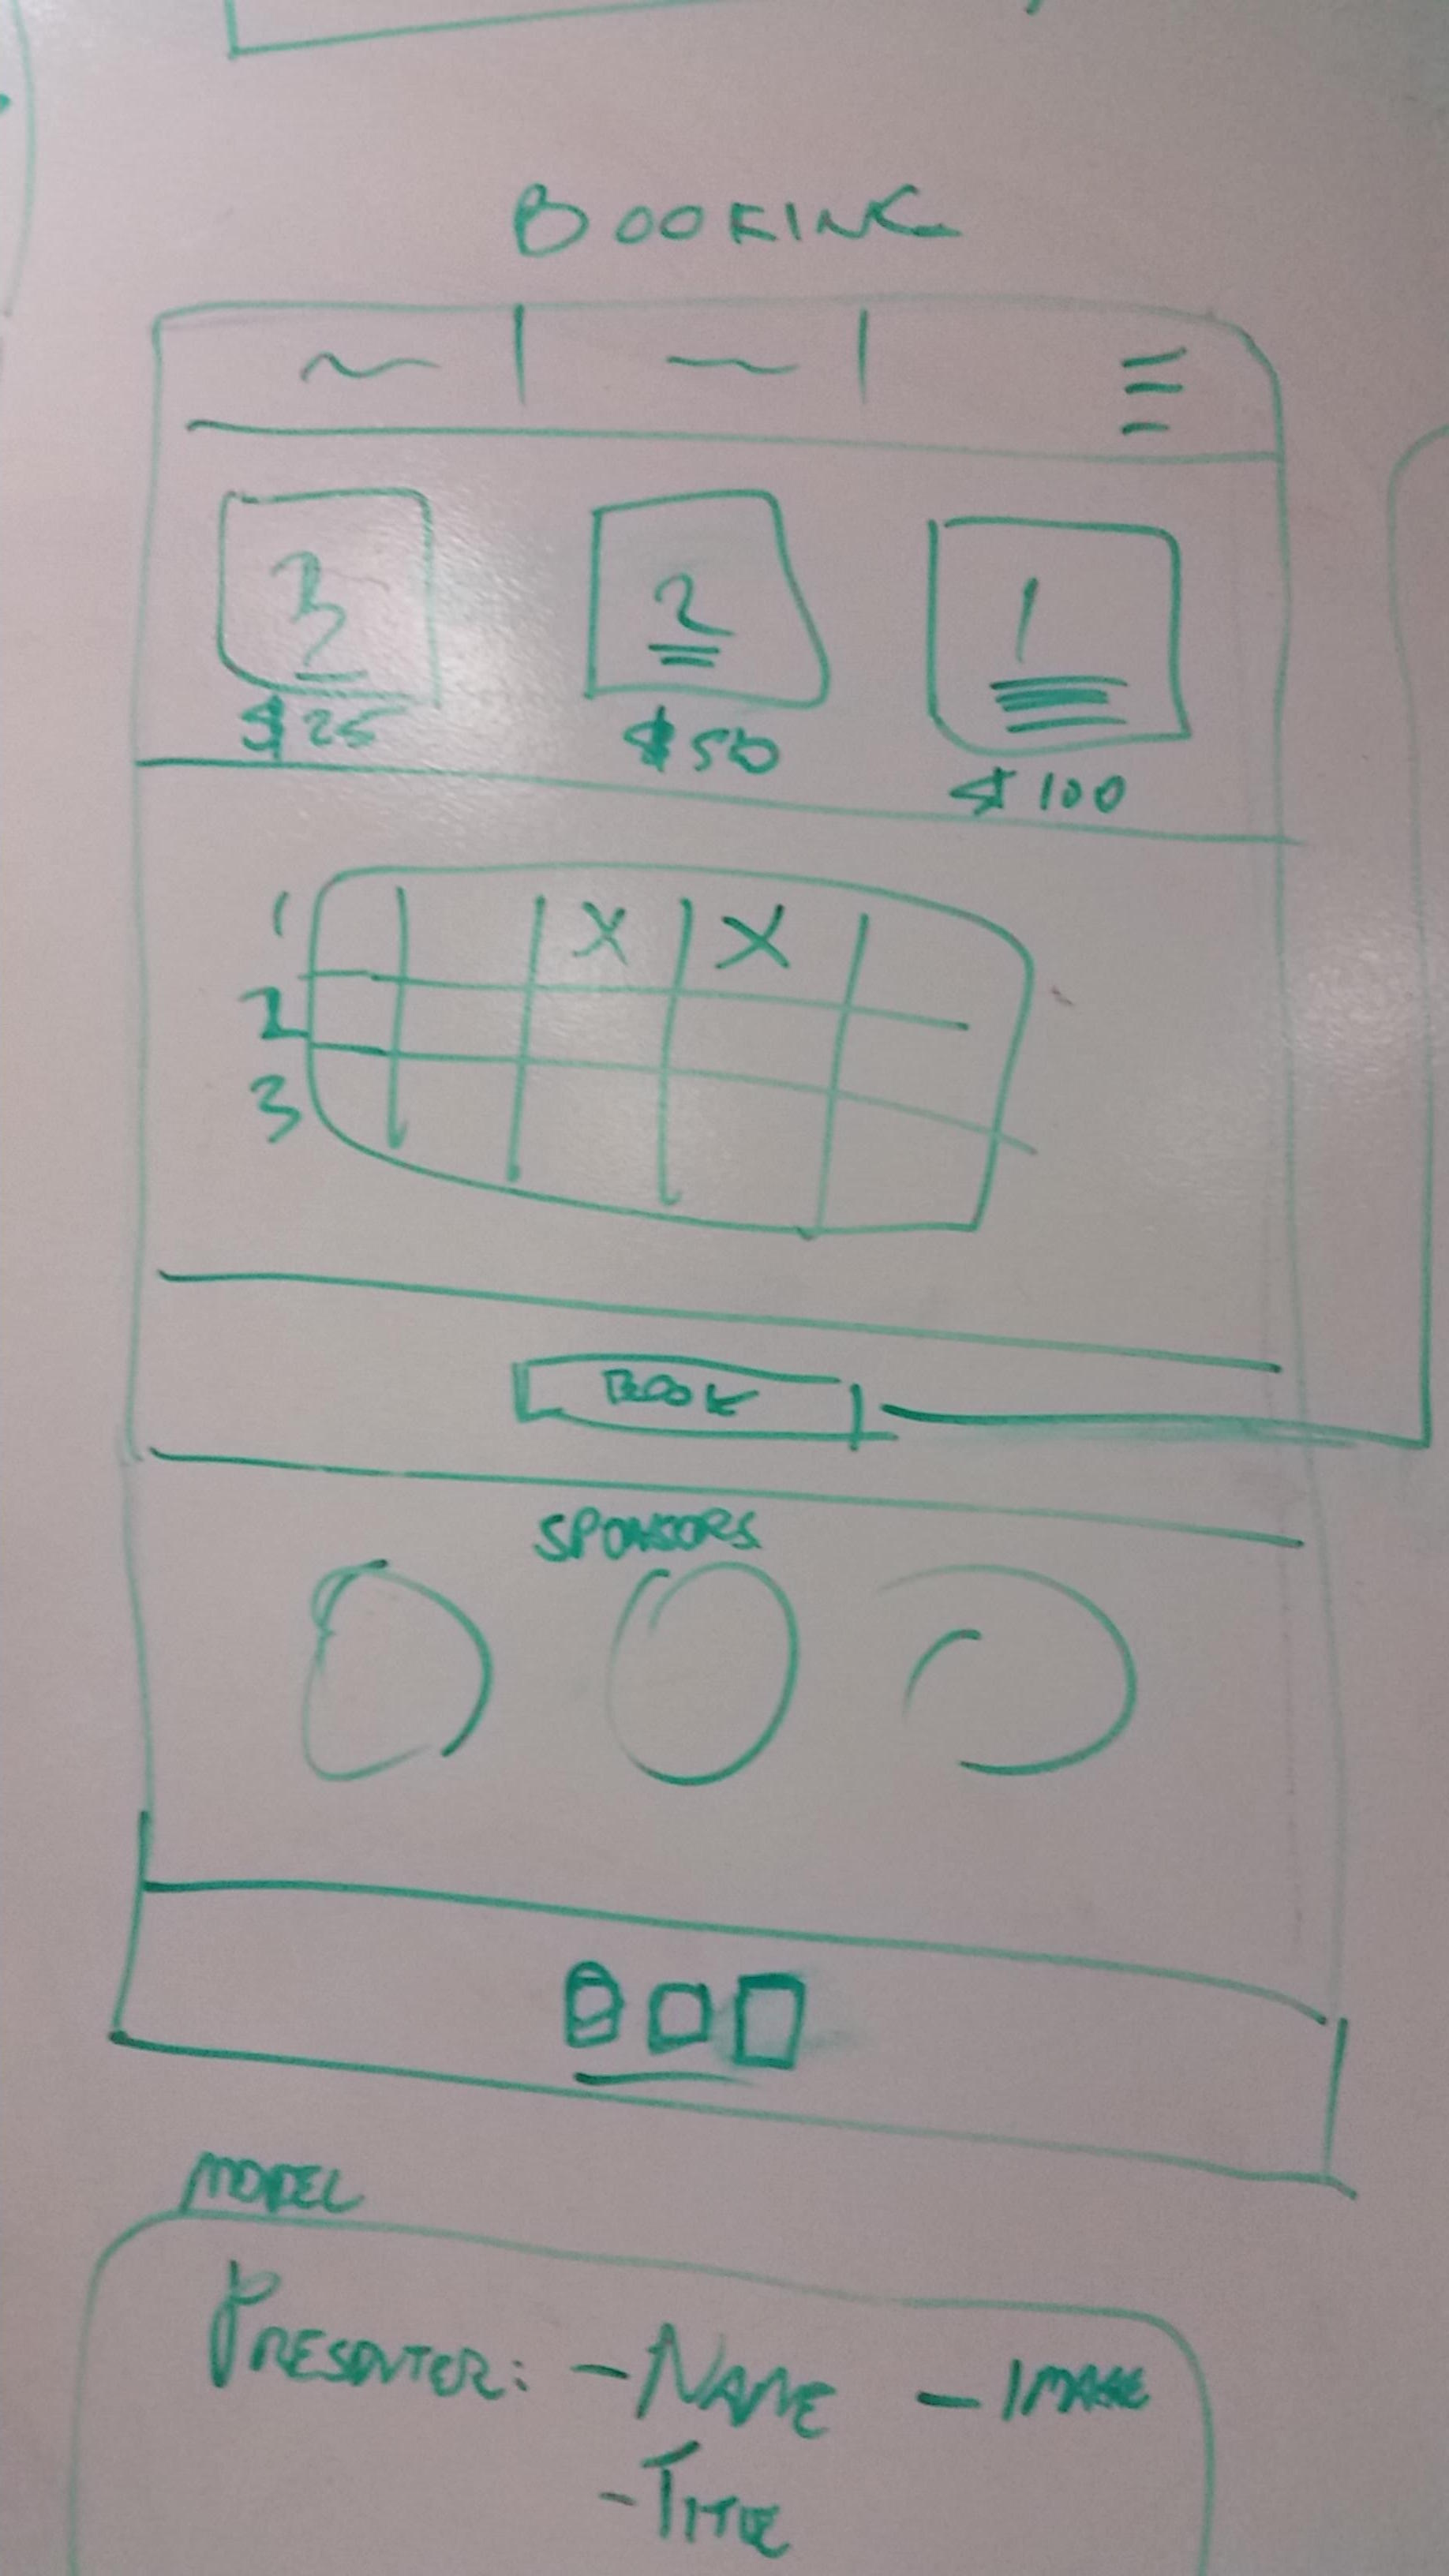 BOOKING
3 2 1
$25 $50 $100
1 X X
2
3
BOOK
SPONSORS
MODEL
PRESENTER: - NAME - IMAGE
- TITLE